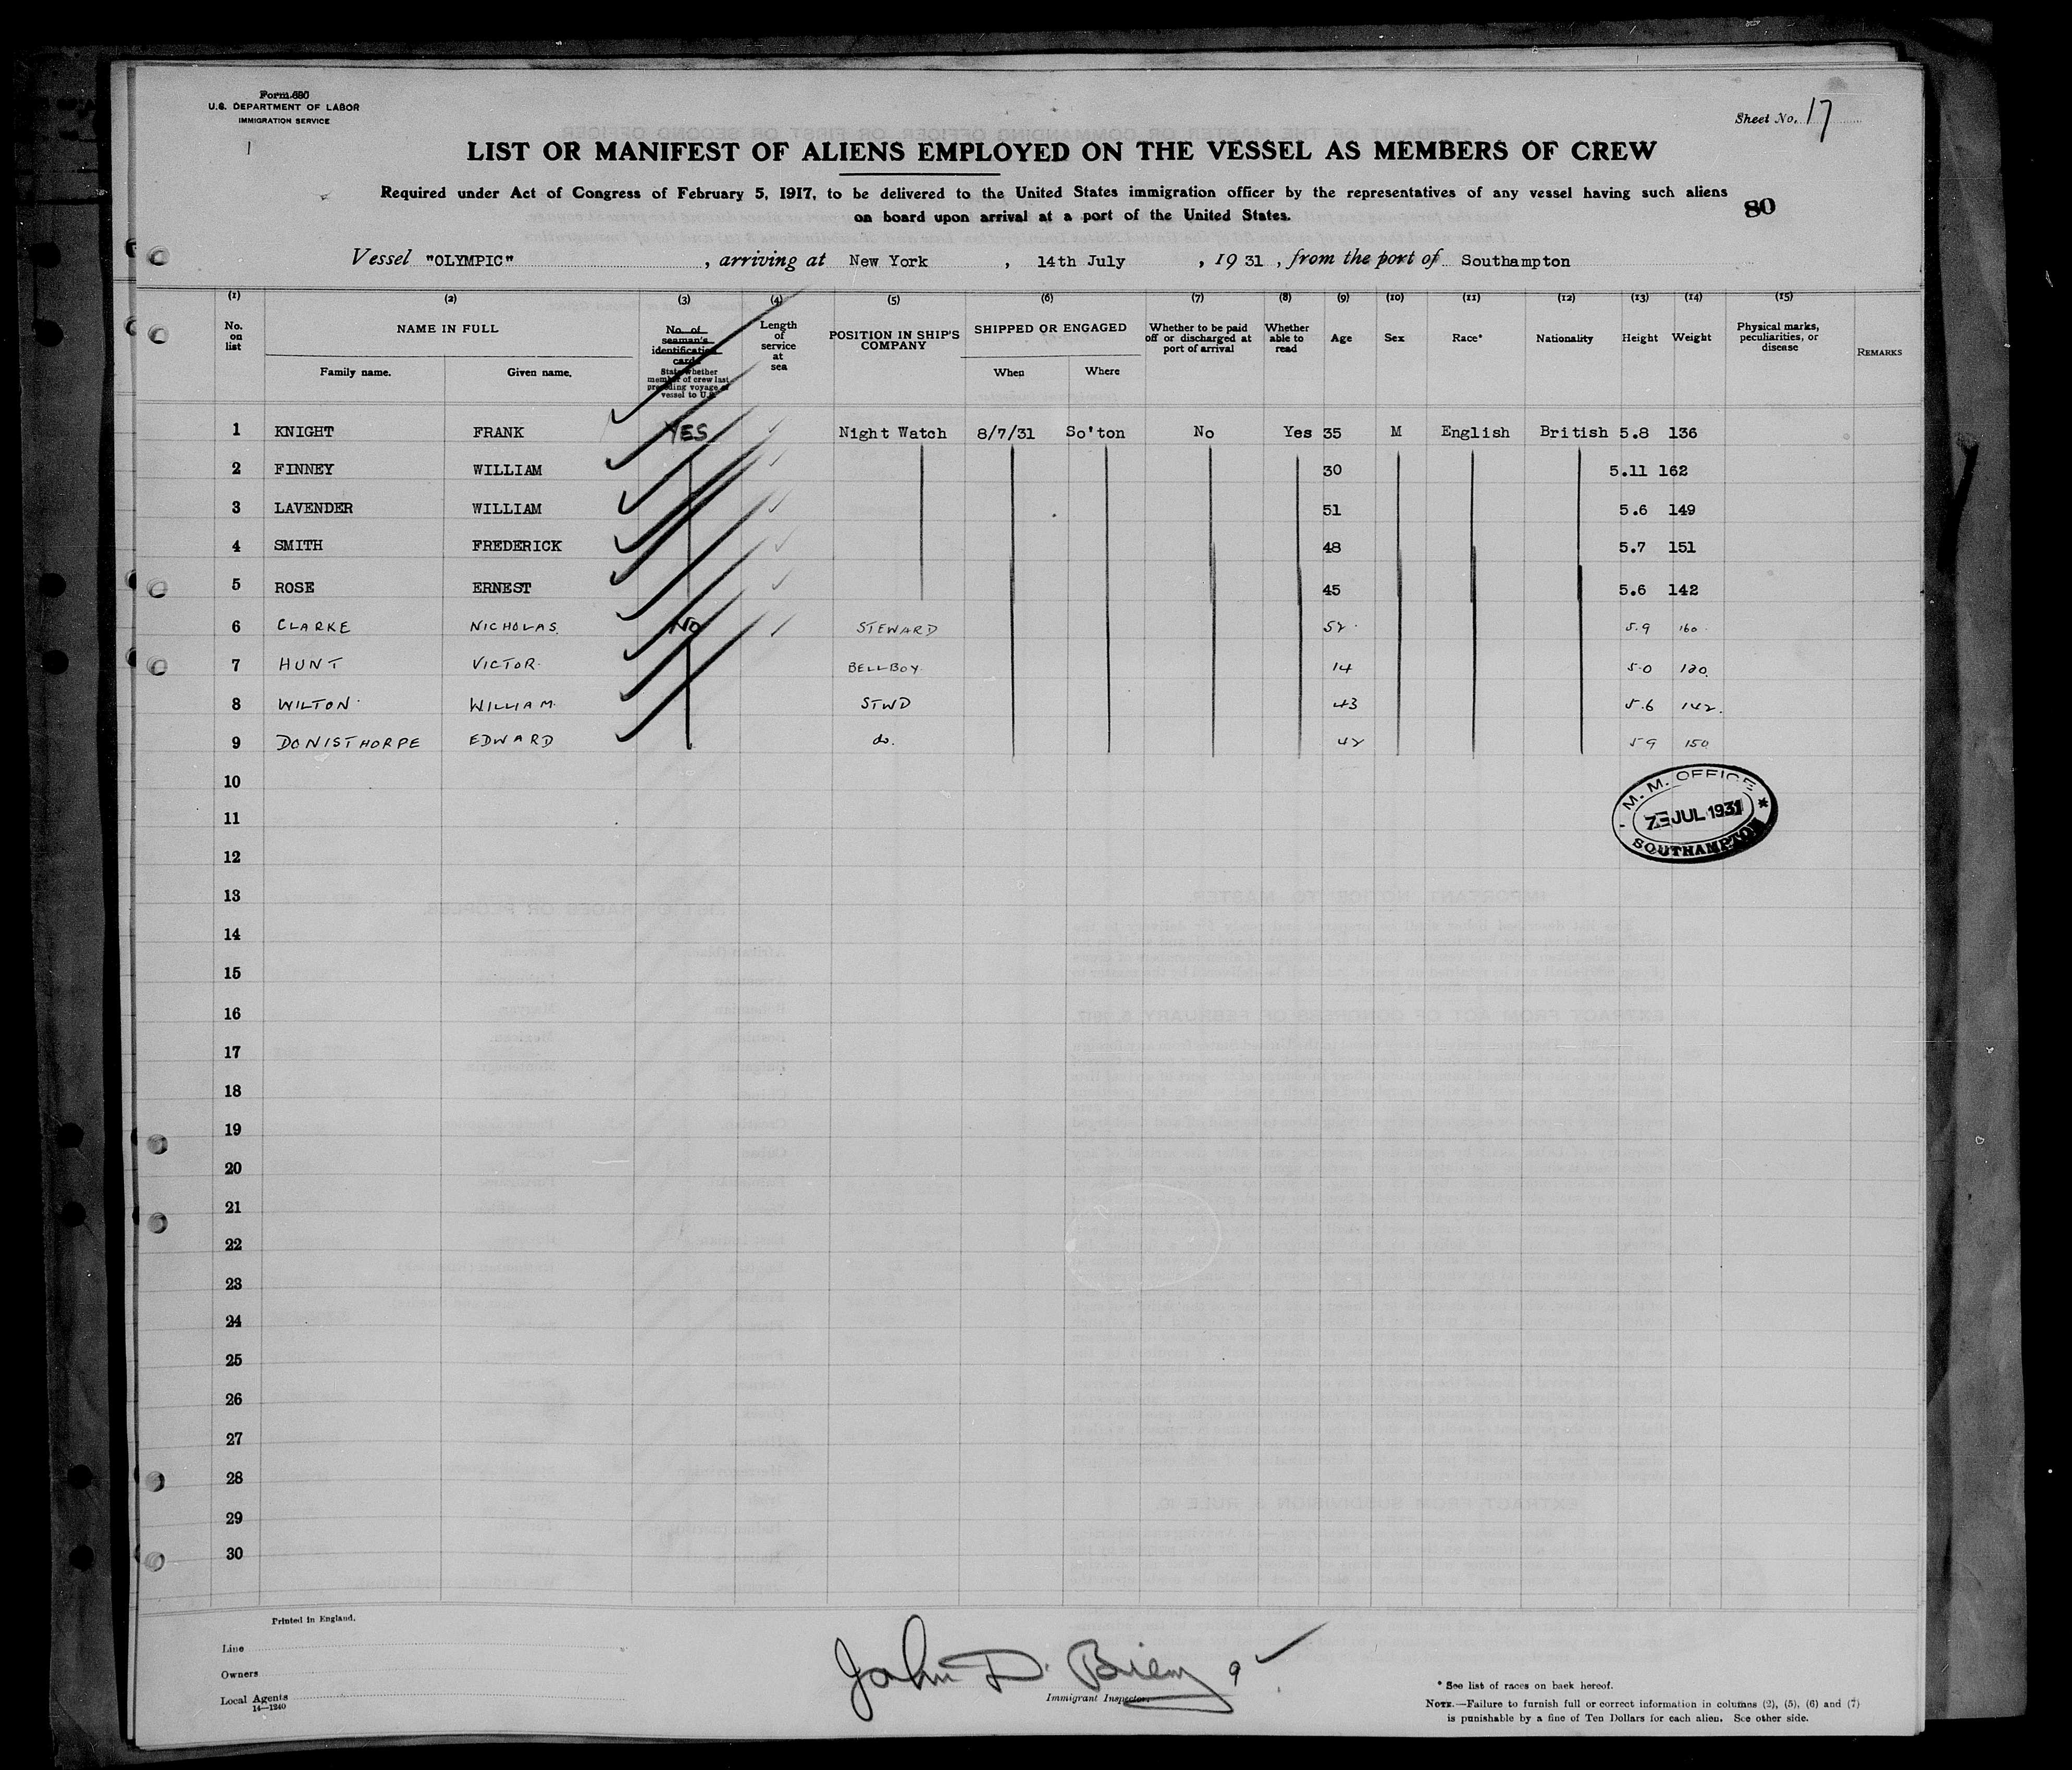 Form 680
U.S. DEPARTMENT OF LABOR
IMMIGRATION SERVICE
Sheet No. 17
LIST OR MANIFEST OF ALIENS EMPLOYED ON THE VESSEL AS MEMBERS OF CREW
Required under Act of Congress of February 5, 1917, to be delivered to the United States immigration officer by the representatives of any vessel having such aliens
on board upon arrival at a port of the United States.
80
Vessel "OLYMPIC", arriving at New York, 14th July, 1931, from the port of Southampton
(1) (2) (3) (4) (5) (6) (7) (8) (9) (10) (11) (12) (13) (14) (15)
No. on list NAME IN FULL Family name. Given name. No. of seaman's identification card State whether member of crew last preceding voyage of vessel to U.S. Length of service at sea POSITION IN SHIP'S COMPANY SHIPPED OR ENGAGED When Where Whether to be paid off or discharged at port of arrival Whether able to read Age Sex Race* Nationality Height Weight Physical marks, peculiarities, or disease REMARKS
1 KNIGHT FRANK YES Night Watch 8/7/31 So'ton No Yes 35 M English British 5.8 136
2 FINNEY WILLIAM 30 5.11 162
3 LAVENDER WILLIAM 51 5.6 149
4 SMITH FREDERICK 48 5.7 151
5 ROSE ERNEST 45 5.6 142
6 CLARKE NICHOLAS. No STEWARD 52 5.9 160
7 HUNT VICTOR BELLBOY 14 5.0 120
8 WILTON WILLIAM STWD 43 5.6 142.
9 DONISTHORPE EDWARD do. 42 59 150
10
M. M. OFFICE
JUL 1931
SOUTHAMPTON
11
12
13
14
15
16
17
18
19
20
21
22
23
24
25
26
27
28
29
30
Printed in England.
Line
Owners
Local Agents
14—1240
John D. Brien 9
Immigrant Inspector.
* See list of races on back hereof.
NOTE.—Failure to furnish full or correct information in columns (2), (5), (6) and (7)
is punishable by a fine of Ten Dollars for each alien. See other side.